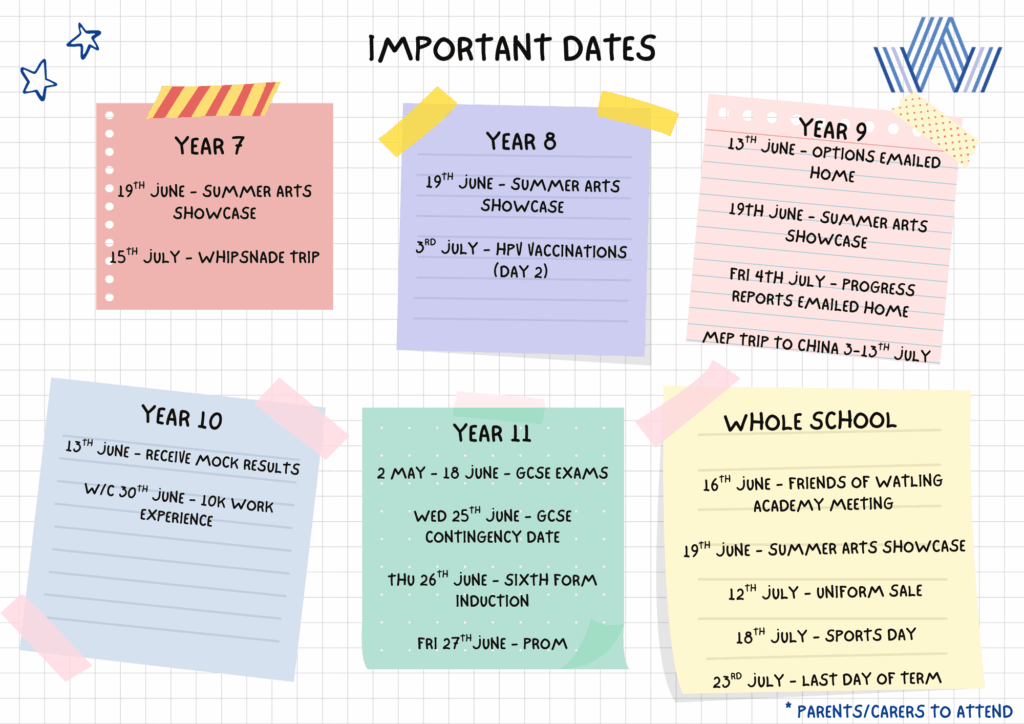 IMPORTANT DATES
YEAR 7
19TH JUNE - SUMMER ARTS
SHOWCASE
15TH JULY - WHIPSNADE TRIP
YEAR 8
19TH JUNE - SUMMER ARTS
SHOWCASE
3RD JULY - HPV VACCINATIONS
(DAY 2)
YEAR 9
13TH JUNE - OPTIONS EMAILED
HOME
19TH JUNE - SUMMER ARTS
SHOWCASE
FRI 4TH JULY - PROGRESS
REPORTS EMAILED HOME
MEP TRIP TO CHINA 3-13TH JULY
YEAR 10
13TH JUNE - RECEIVE MOCK RESULTS
W/C 30TH JUNE - 10K WORK
EXPERIENCE
YEAR 11
2 MAY - 18 JUNE - GCSE EXAMS
WED 25TH JUNE - GCSE
CONTINGENCY DATE
THU 26TH JUNE - SIXTH FORM
INDUCTION
FRI 27TH JUNE - PROM
WHOLE SCHOOL
16TH JUNE - FRIENDS OF WATLING
ACADEMY MEETING
19TH JUNE - SUMMER ARTS SHOWCASE
12TH JULY - UNIFORM SALE
18TH JULY - SPORTS DAY
23RD JULY - LAST DAY OF TERM
* PARENTS/CARERS TO ATTEND